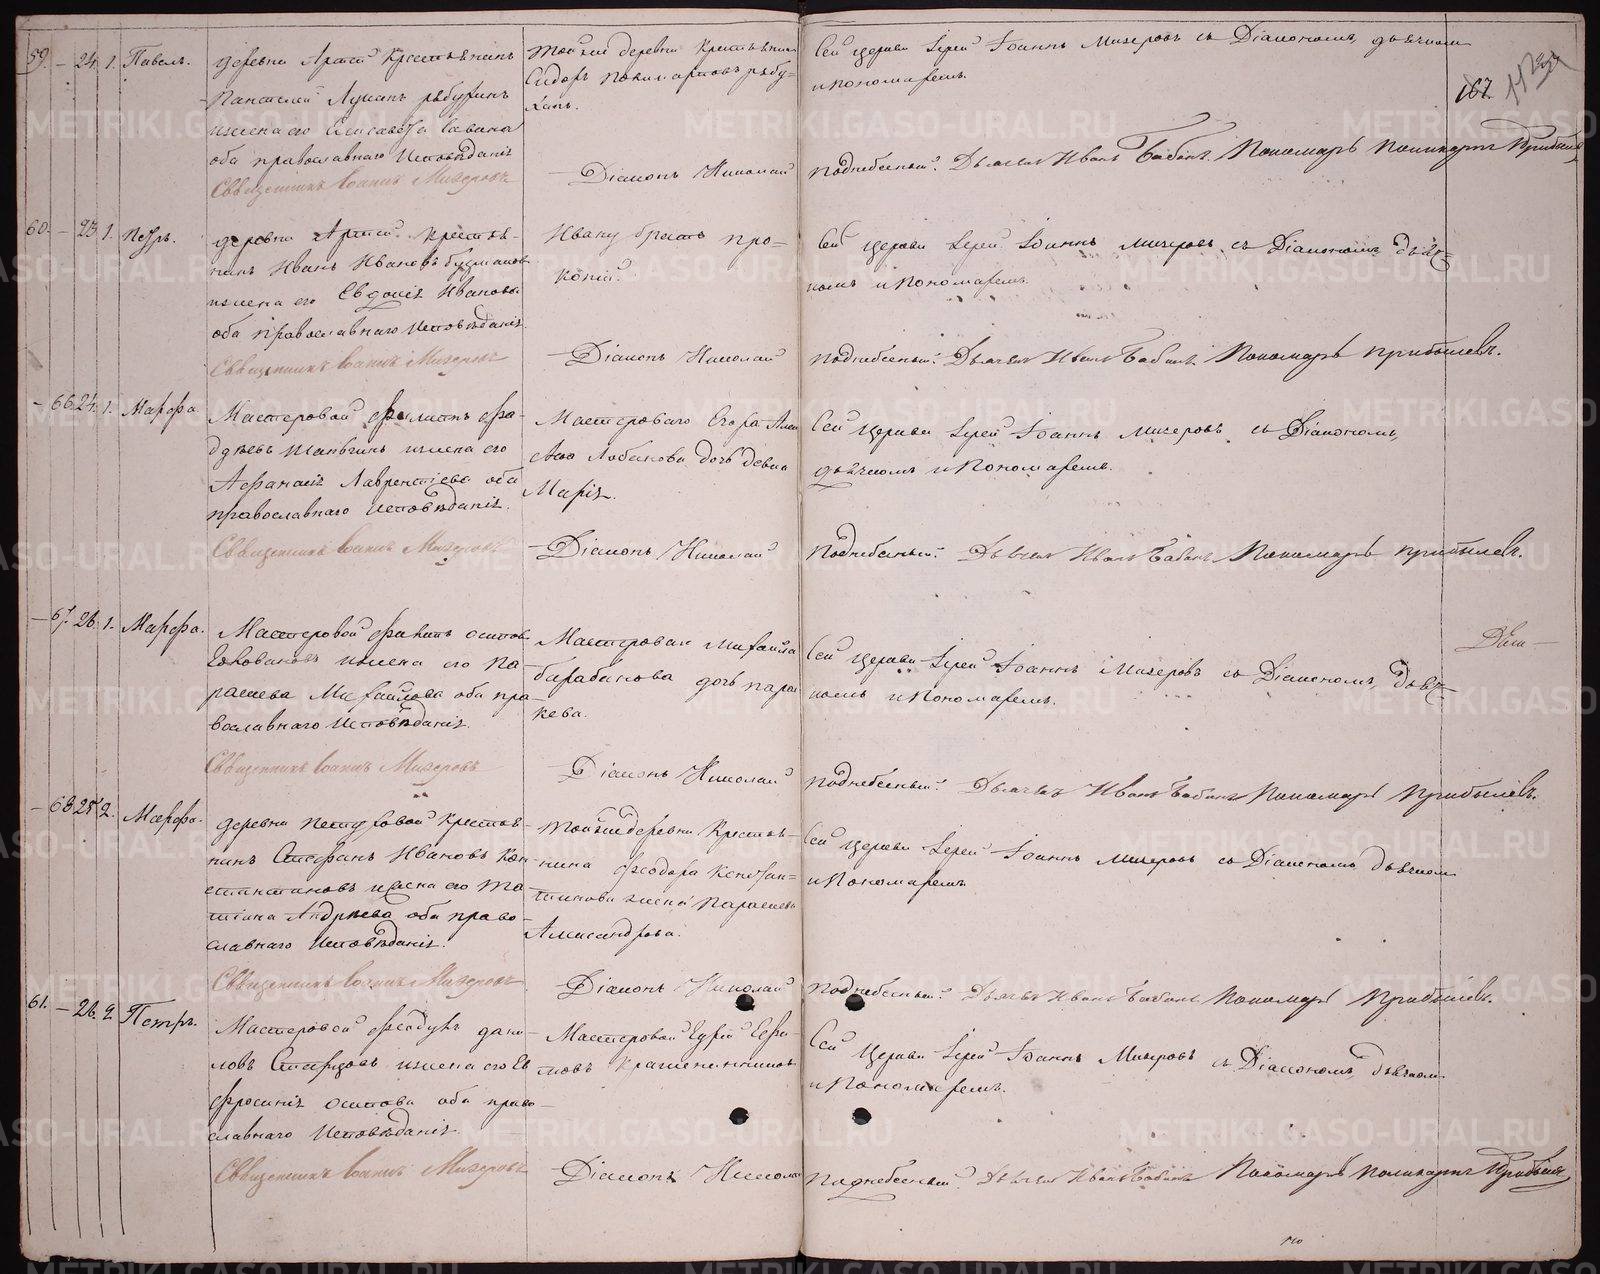 59. — 24. 1. Павелъ.
деревни Артей Крестьянинъ
Пантелей Лукинъ
и жена его Елисавета Савина
оба православнаго Исповѣданія
Священникъ Іоаннъ Мизеровъ
Тойже деревни Крестьянинъ
Сидоръ
Діаконъ Николай
Сей церкви Іерей Іоаннъ Мизеровъ съ Діакономъ, дьячкомъ
и Пономаремъ.
167.
Поднебесный. Дьячекъ Иванъ Бабинъ. Пономарь Поликарпъ Прибылевъ
60. — 23. 1. Петръ.
деревни Артей Крестья-
нинъ Иванъ Ивановъ
и жена его Евдокія Иванова
оба православнаго Исповѣданія.
Священникъ Іоаннъ Мизеровъ
Ивану братъ про-
копій.
Діаконъ Николай
Сей церкви Іерей Іоаннъ Мизеровъ съ Діакономъ дьяч-
комъ и Пономаремъ.
Поднебесный. Дьячекъ Иванъ Бабинъ Пономарь Прибылевъ.
— 66. 24. 1. Марфа.
Мастеровой Филипъ Фа-
дѣевъ и жена его
Афанасія Лаврентіева оба
православнаго Исповѣданія.
Священникъ Іоаннъ Мизеровъ
Мастероваго Егора
Лобанова дочь девка
Марія.
Діаконъ Николай
Сей церкви Іерей Іоаннъ Мизеровъ съ Діакономъ,
дьячкомъ и Пономаремъ.
Поднебесный. Дьячекъ Иванъ Бабинъ Пономарь Прибылевъ.
— 67. 26. 1. Марфа.
Мастеровой осиповъ
и жена его Па-
раскева Михайлова оба пра-
вославнаго Исповѣданія.
Священникъ Іоаннъ Мизеровъ
Мастероваго Михайла
барабанова дочь парас-
кева.
Діаконъ Николай
Сей церкви Іерей Іоаннъ Мизеровъ съ Діакономъ, дьяч-
комъ и Пономаремъ.
Поднебесный. Дьячекъ Иванъ Бабинъ Пономарь Прибылевъ.
— 68. 25. 2. Марфа.
деревни Петуховой Крестья-
нинъ Стефанъ Ивановъ Кон-
стантиновъ и жена его Та-
тіана Андреева оба право-
славнаго Исповѣданія.
Священникъ Іоаннъ Мизеровъ
тойже деревни Крестья-
нина Феодора Констан-
тинова жена Параскева
Александрова.
Діаконъ Николай
Сей церкви Іерей Іоаннъ Мизеровъ съ Діакономъ дьячком
и Пономаремъ
Поднебесный. Дьячекъ Иванъ Бабинъ Пономарь Прибылевъ.
61. — 26. 2. Петръ.
Мастеровой Федулъ дани-
ловъ Старцовъ и жена его Ев-
фросинія осипова оба право-
славнаго Исповѣданія.
Священникъ Іоаннъ Мизеровъ
Мастеровой Ефи-
мовъ Крашенинниковъ
Діаконъ Николай
Сей церкви Іерей Іоаннъ Мизеровъ съ Діакономъ, дьячком
и Пономаремъ.
Поднебесный. Дьячекъ Иванъ Бабинъ Пономарь Поликарпъ Прибылевъ
METRIKI.GASO-URAL.RU